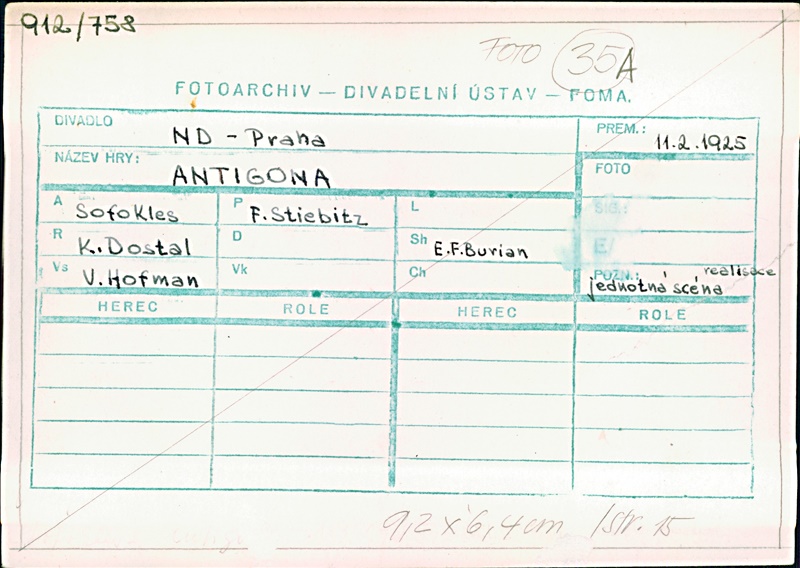 912/758
FOTO 35A
FOTOARCHIV — DIVADELNÍ ÚSTAV — FOMA.
DIVADLO ND - Praha
PREM.: 11.2.1925
NÁZEV HRY: ANTIGONA
FOTO
A Sofokles P F. Stiebitz L
SIG.:
R K. Dostal D Sh E.F. Burian
E/
Vs V. Hofman Vk Ch
POZN.: realisace
jednotná scéna
HEREC ROLE HEREC ROLE
9,2 x 6,4 cm /str. 15